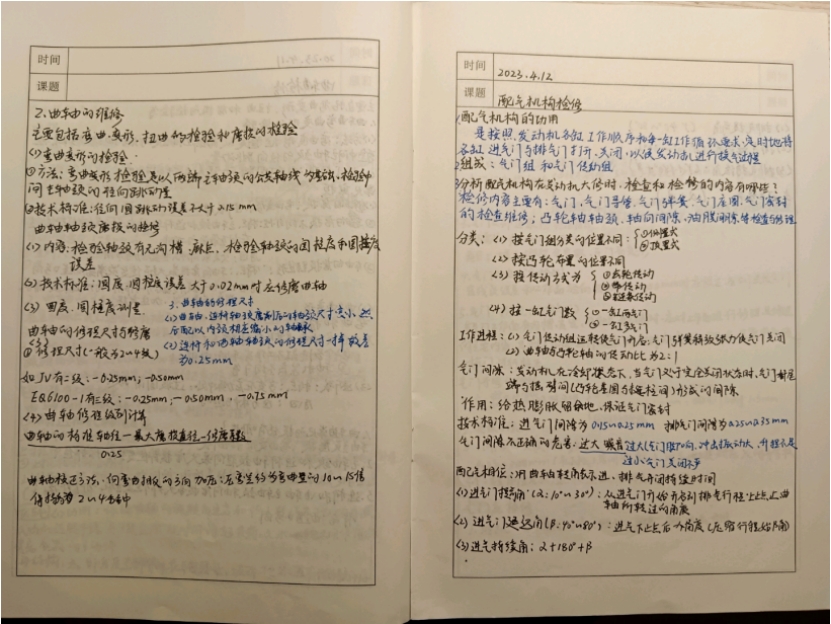 时间
课题
2.曲轴的维修
主要包括弯曲变形、扭曲的检验和磨损的检验
(1)弯曲变形的检验
①方法:弯曲变形检验是以两端主轴颈的公共轴线为基础,检验中
间主轴颈的径向跳动量
②技术标准:径向圆跳动误差不大于0.15mm
曲轴轴颈磨损的检修
(1)内容:检验轴颈有无沟槽、麻点,检验轴颈的圆柱度和圆度
误差
(2)技术标准:圆度、圆柱度误差大于0.02mm时应修磨曲轴
(3)圆度、圆柱度测量
曲轴的修理尺寸与修磨
①修理尺寸(一般为2~4级)
3.曲轴的修理尺寸
(1)曲轴、连杆轴颈磨削后的轴颈尺寸变小,然
后配以内径相应缩小的轴承
(2)连杆和曲轴轴颈的修理尺寸一样 级差
为0.25mm
如JV有二级:-0.25mm;-0.50mm
EQ6100-1有三级:-0.25mm;-0.50mm,-0.75mm
(4)曲轴修理级别计算
曲轴的标准轴径-最大磨损直径-修磨系数
0.25
曲轴校正方法:向弯曲 的方向加压:压变量约为弯曲量的10~15倍
保持 2~4 钟
时间
2023.4.12
课题
配气机构检修
1.配气机构的功用
是按照发动机各缸工作顺序和每一缸工作循环要求,定时地将
各缸进气门与排气门打开、关闭,以便发动机进行换气过程
2.组成:气门组和气门传动组
3.分析配气机构在发动机大修时,检查和检修的内容有哪些?
检修内容主要有:气门、气门导管、气门弹簧、气门座圈、气门密封
的检查维修;凸轮轴轴颈、轴向间隙、油膜间隙等检查与修理
分类:(1)按气门组分类的位置不同:
①侧置式
②顶置式
(2)按凸轮布置的位置不同
(3)按传动方式为
①齿轮传动
②带传动
③链条传动
(4)按一缸气门数
①一缸两气门
②一缸多气门
工作过程:(1)气门传动组运转使气门打开;气门弹簧释放张力使气门关闭
(2)曲轴与凸轮轴的传动比为2:1
气门间隙:发动机在冷却状态下,当气门处于完全关闭状态时,气门杆尾
端与摇臂间(凸轮基圆与挺柱间)形成的间隙
作用:给热膨胀留余地,保证气门密封
技术标准:进气门间隙为0.15~0.25mm 排气门间隙为0.25~0.35mm
气门间隙不正确的危害:过大 噪音过大(气门 ,冲击振动大、升程不足
过小气门关闭不严
配气相位:用曲轴转角表示进、排气开闭持续时间
(1)进气门提前角(α:10°~30°):从进气门开始开启到排气行程上止点,曲
轴所转过的角度
(2)进气门迟闭角(β:40°~80°):进气下止点后的角度(压缩行程始角)
(3)进气持续角:α+180°+β